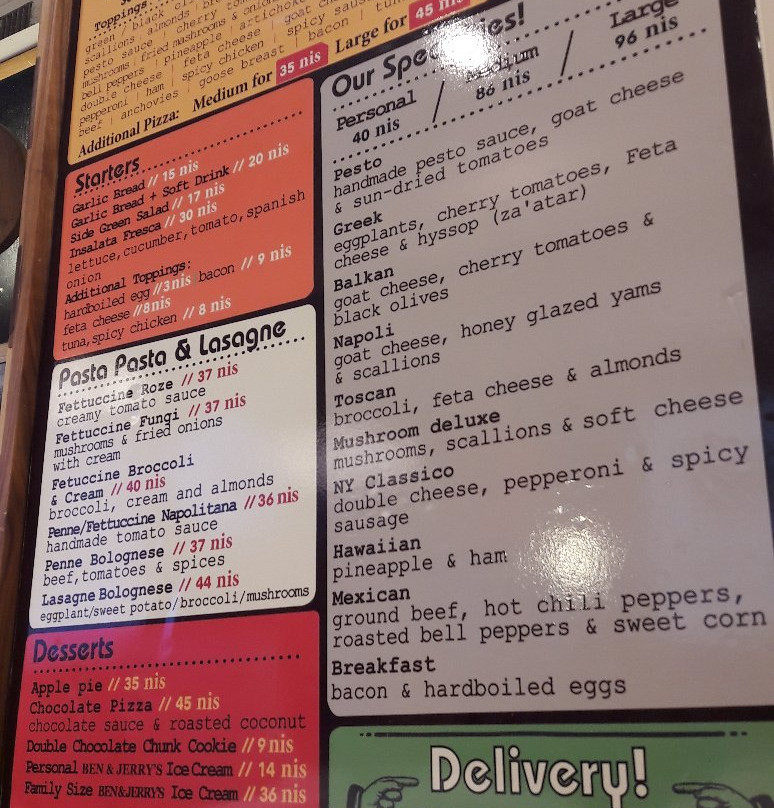 Toppings:
green / black ol
scallions almonds bro
pesto sauce cherry to
mushrooms fried mushrooms & onion
bell peppers pineapple artichok
double cheese feta cheese goat ch
pepperoni ham spicy chicken spicy sau
beef anchovies goose breast bacon tun
Additional Pizza: Medium for 35 nis Large for 45 nis
Starters
Garlic Bread // 15 nis
Garlic Bread + Soft Drink // 20 nis
Side Green Salad // 17 nis
Insalata Fresca // 30 nis
lettuce, cucumber, tomato, spanish
onion
Additional Toppings:
hardboiled egg //3nis bacon // 9 nis
feta cheese //8nis
tuna, spicy chicken // 8 nis
Pasta Pasta & Lasagne
Fettuccine Roze // 37 nis
creamy tomato sauce
Fettuccine Fungi // 37 nis
mushrooms & fried onions
with cream
Fetuccine Broccoli
& Cream // 40 nis
broccoli, cream and almonds
Penne/Fettuccine Napolitana //36 nis
handmade tomato sauce
Penne Bolognese // 37 nis
beef, tomatoes & spices
Lasagne Bolognese // 44 nis
eggplant/sweet potato/broccoli/mushrooms
Desserts
Apple pie // 35 nis
Chocolate Pizza // 45 nis
chocolate sauce & roasted coconut
Double Chocolate Chunk Cookie // 9 nis
Personal BEN & JERRY'S Ice Cream // 14 nis
Family Size BEN&JERRY'S Ice Cream // 36 nis
Our Spe ies!
Personal / Medium / Large
40 nis 86 nis 96 nis
Pesto
handmade pesto sauce, goat cheese
& sun-dried tomatoes
Greek
eggplants, cherry tomatoes, Feta
cheese & hyssop (za'atar)
Balkan
goat cheese, cherry tomatoes &
black olives
Napoli
goat cheese, honey glazed yams
& scallions
Toscan
broccoli, feta cheese & almonds
Mushroom deluxe
mushrooms, scallions & soft cheese
NY Classico
double cheese, pepperoni & spicy
sausage
Hawaiian
pineapple & ham
Mexican
ground beef, hot chili peppers,
roasted bell peppers & sweet corn
Breakfast
bacon & hardboiled eggs
Delivery!